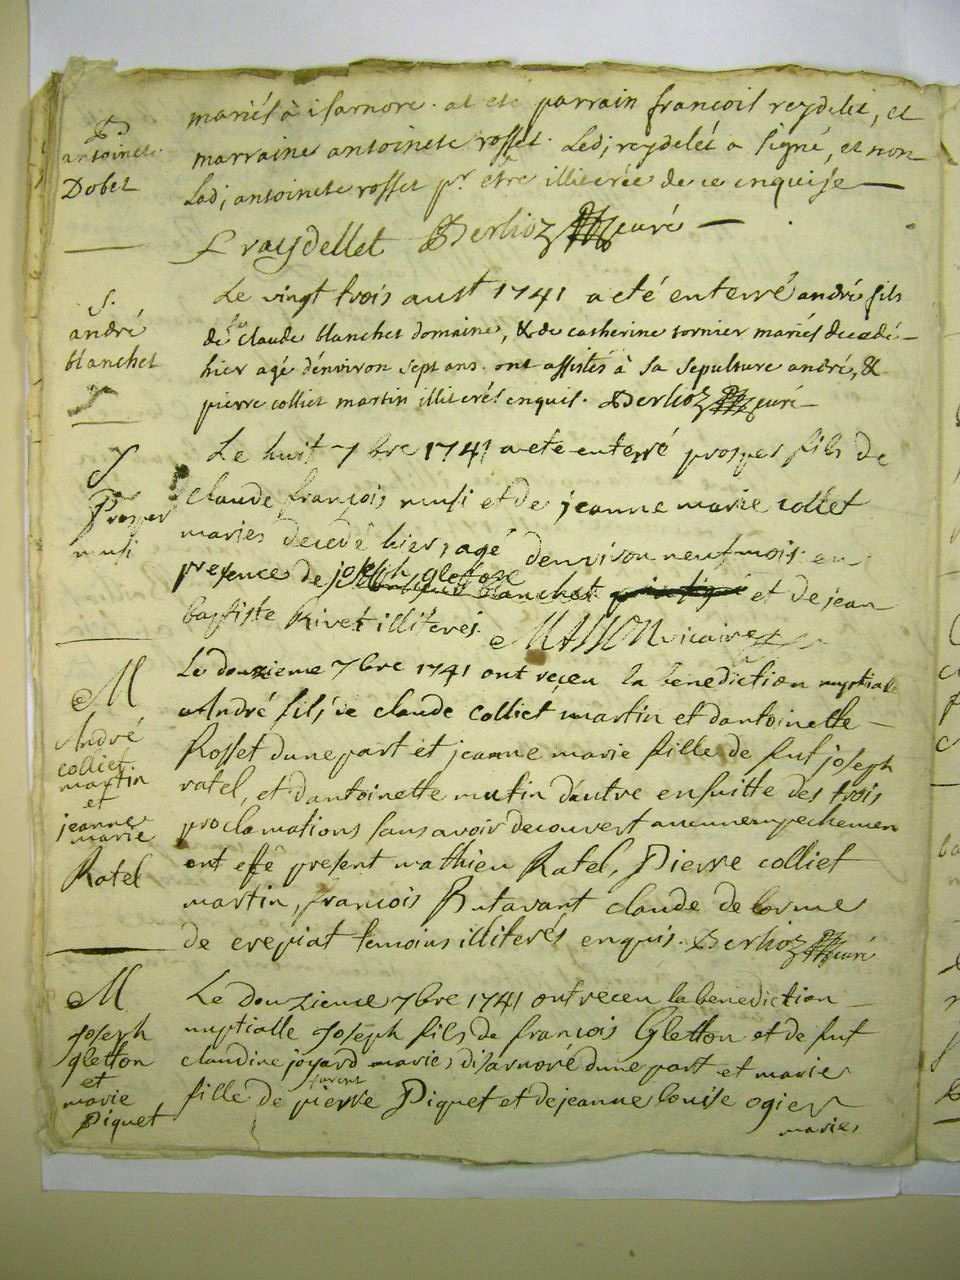 B.
antoinete
Dobet
mariés à isarnore. at eté parrain françois reydelet, et
marraine antoinete rosset. Led; reydelét a signé, et non
Lad; antoinete rosset pr. etre illiterée de ce enquise
f raydellet Berlioz curé
S.
andré
blanchet
Le vingt trois aust 1741 a eté enterré andré fils
de feu claude blanchet domaine, & de catherine tornier mariés decedé
hier agé d'énviron sept ans. ont assistés à sa sepulture andré, &
pierre colliet martin illiterés enquis. Berlioz curé
S
Prosper
musi
Le huit 7bre 1741 a ete enterré prosper fils de
claude françois musi et de jeanne marie collet
maries decedé hier, agé denviron neuf mois en
presence de joseph glettoze blanchet et de jean
baptiste Rivet illiterés. MASSON vicaire
M
André
colliet
martin
et
jeanne
marie
Ratel
Le douzieme 7bre 1741 ont reçeu la benediction nuptiale
André fils de claude colliet martin et dantoinette
Rosset dune part et jeanne marie fille de fut joseph
ratel, et dantoinette mutin dautre ensuitte des trois
proclamations sans avoir decouvert aucun empechemen
ont esté present mathieu Ratel, Pierre colliet
martin, françois Butavant claude delorme
de crepiat temoins illiterés enquis. Berlioz curé
M
Joseph
gletton
et
marie
Piquet
Le douzieme 7bre 1741 ont receu la benediction
nuptialle Joseph fils de françois Gletton et de fut
claudine joyard maries disarnore dune part et marie
fille de pierre Piquet et de jeanne louise ogier
maries